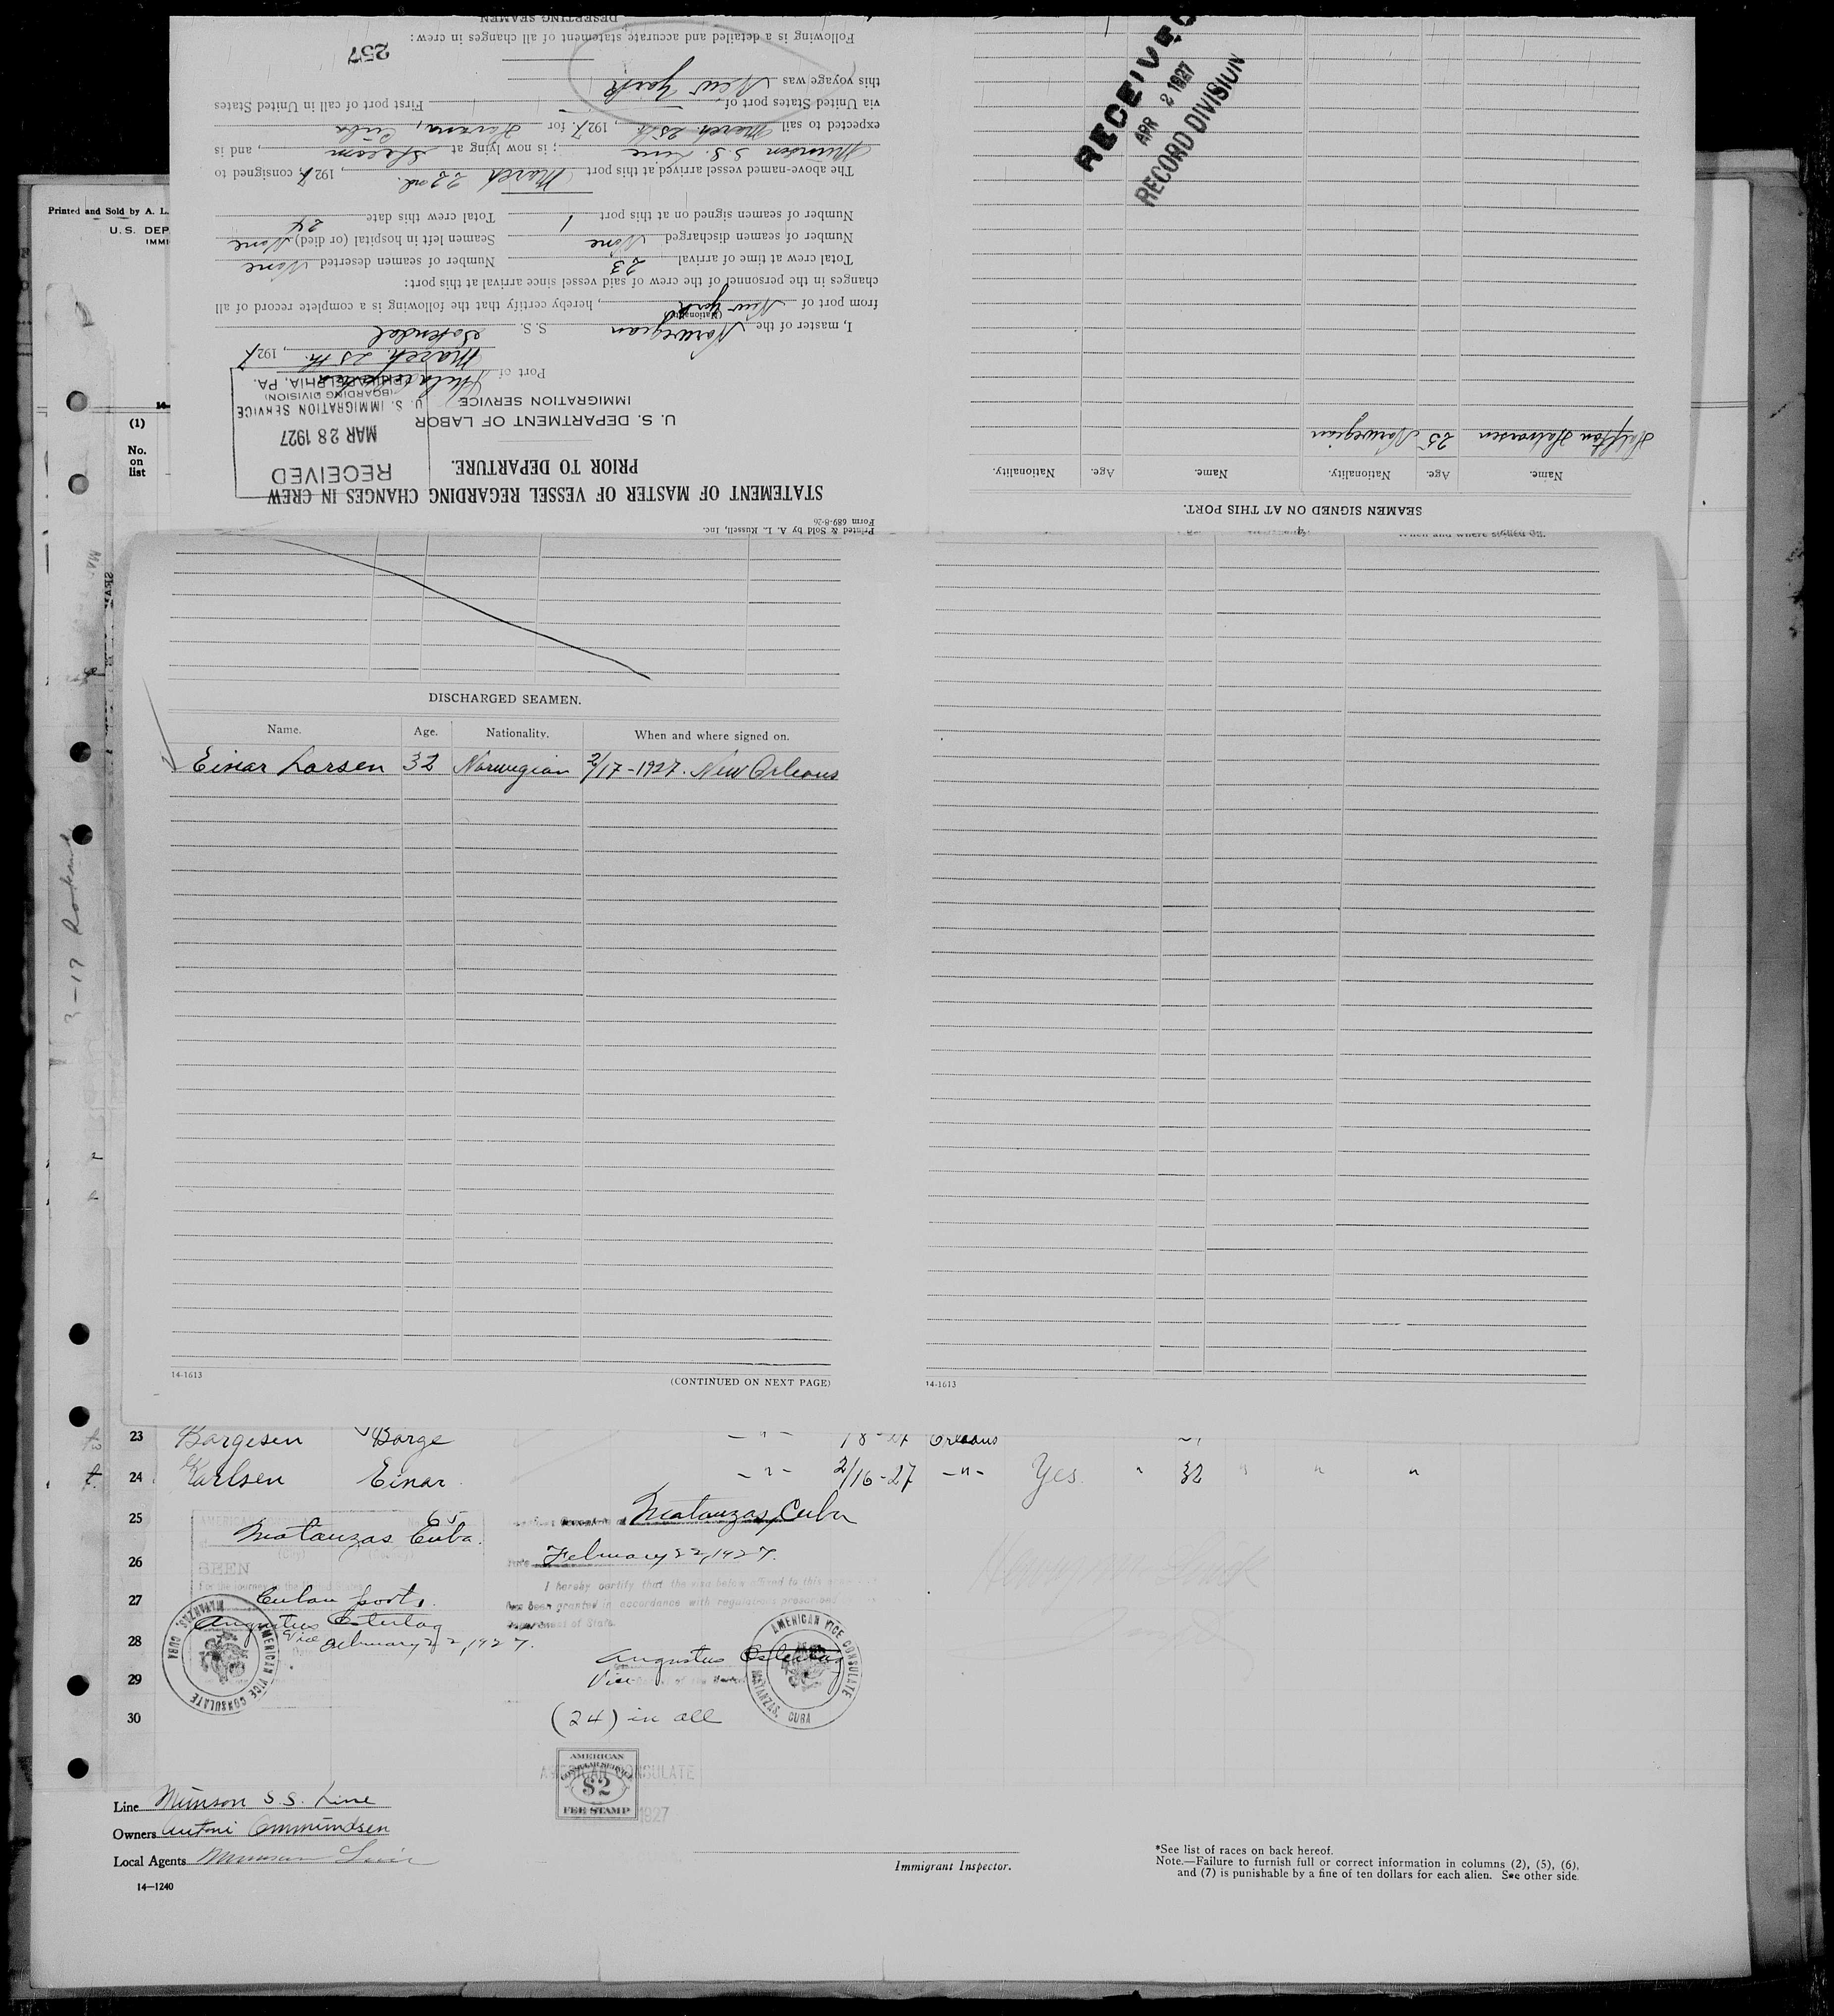 Printed and Sold by A. L.
U. S. DEP
IMMI
(1)
No.
on
list
3-17
Printed & Sold by A. L. Russell, Inc.
Form 689-8-26
STATEMENT OF MASTER OF VESSEL REGARDING CHANGES IN CREW
PRIOR TO DEPARTURE.
RECEIVED
MAR 28 1927
U. S. IMMIGRATION SERVICE
(BOARDING DIVISION)
PHILADELPHIA, PA.
U. S. DEPARTMENT OF LABOR
IMMIGRATION SERVICE
Port of Philadelphia
March 25th, 1927
I, master of the Norwegian S.S.
(Nationality)
from port of New York, hereby certify that the following is a complete record of all
changes in the personnel of the crew of said vessel since arrival at this port:
Total crew at time of arrival 23 Number of seamen deserted None
Number of seamen discharged None Seamen left in hospital (or died) None
Number of seamen signed on at this port 1 Total crew this date 24
The above-named vessel arrived at this port March 22nd, 1927, consigned to
Munson S.S. Line; is now lying at, and is
expected to sail March 25th, 1927, for Havana, Cuba
via United States port of First port of call in United States
this voyage was New York
257
Following is a detailed and accurate statement of all changes in crew:
DESERTING SEAMEN
SEAMEN SIGNED ON AT THIS PORT.
Name. Age. Nationality. Name. Age. Nationality.
Halfdan Halvorsen 25 Norwegian
RECEIVED
APR 2 1927
RECORD DIVISION
When and where signed on.
DISCHARGED SEAMEN.
Name. Age. Nationality. When and where signed on.
Einar Larsen 32 Norwegian 2/17-1927. New Orleans
14-1613 (CONTINUED ON NEXT PAGE)
14-1613
23 Borgesen Borge -"- Orleans
24 Karlsen Einar -"- 2/16-27 -"- Yes " 32 " " "
25 Matanzas Cuba. Matanzas, Cuba
26 SEEN February 22, 1927.
I hereby certify that the visa below affixed to this
27 Cuban ports. has been granted in accordance with regulations prescribed
Department of State.
Augustus Ostertag
28 Vice February 22, 1927.
Augustus Ostertag
29 Vice
AMERICAN VICE CONSULATE
MATANZAS, CUBA
AMERICAN VICE CONSULATE
MATANZAS, CUBA
30 (24) in all
AMERICAN CONSULATE
AMERICAN
CONSULAR SERVICE
$2
FEE STAMP
1927
Line Munson S.S. Line
Owners Antoni Ommundsen
Local Agents Munson Line
14—1240
Immigrant Inspector.
*See list of races on back hereof.
Note.—Failure to furnish full or correct information in columns (2), (5), (6),
and (7) is punishable by a fine of ten dollars for each alien. See other side.